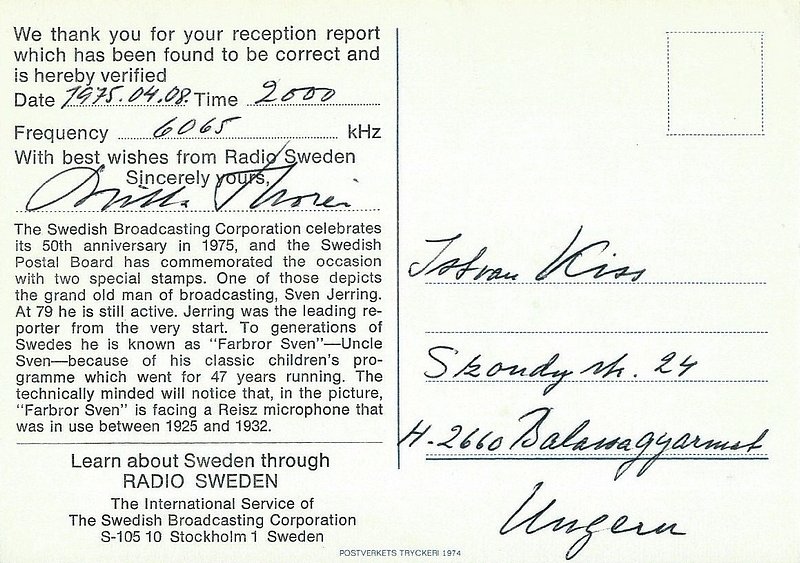 We thank you for your reception report
which has been found to be correct and
is hereby verified
Date 1975.04.08. Time 2000
Frequency 6065 kHz
With best wishes from Radio Sweden
Sincerely yours,
The Swedish Broadcasting Corporation celebrates
its 50th anniversary in 1975, and the Swedish
Postal Board has commemorated the occasion
with two special stamps. One of those depicts
the grand old man of broadcasting, Sven Jerring.
At 79 he is still active. Jerring was the leading re-
porter from the very start. To generations of
Swedes he is known as "Farbror Sven"—Uncle
Sven—because of his classic children's pro-
gramme which went for 47 years running. The
technically minded will notice that, in the picture,
"Farbror Sven" is facing a Reisz microphone that
was in use between 1925 and 1932.
Learn about Sweden through
RADIO SWEDEN
The International Service of
The Swedish Broadcasting Corporation
S-105 10 Stockholm 1 Sweden
Istvan Kiss
24
H-2660 Balassagyarmat
Ungern
POSTVERKETS TRYCKERI 1974